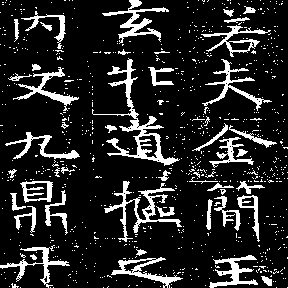 若夫金簡玉
玄牝道摳之
内文九鼎丹